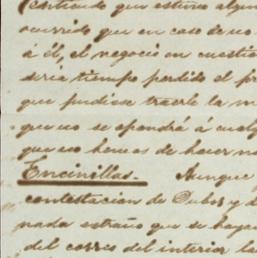 que estuvo algun
ocurrido que en caso de no
á él, el negocio en cuestio
seria tiempo perdido el pr
que pudiese traerle la m
que no se opondrá á cualq
que eso hemos de hacer no
Encinillas. Aunque
contestacion de Dubos y d
nada estraño que se haya
del correo del interior la